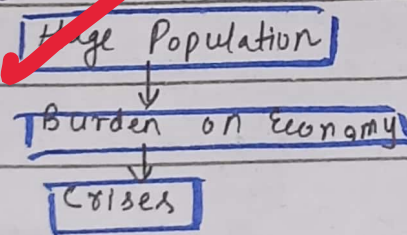 Huge Population
Burden on Economy
Crises